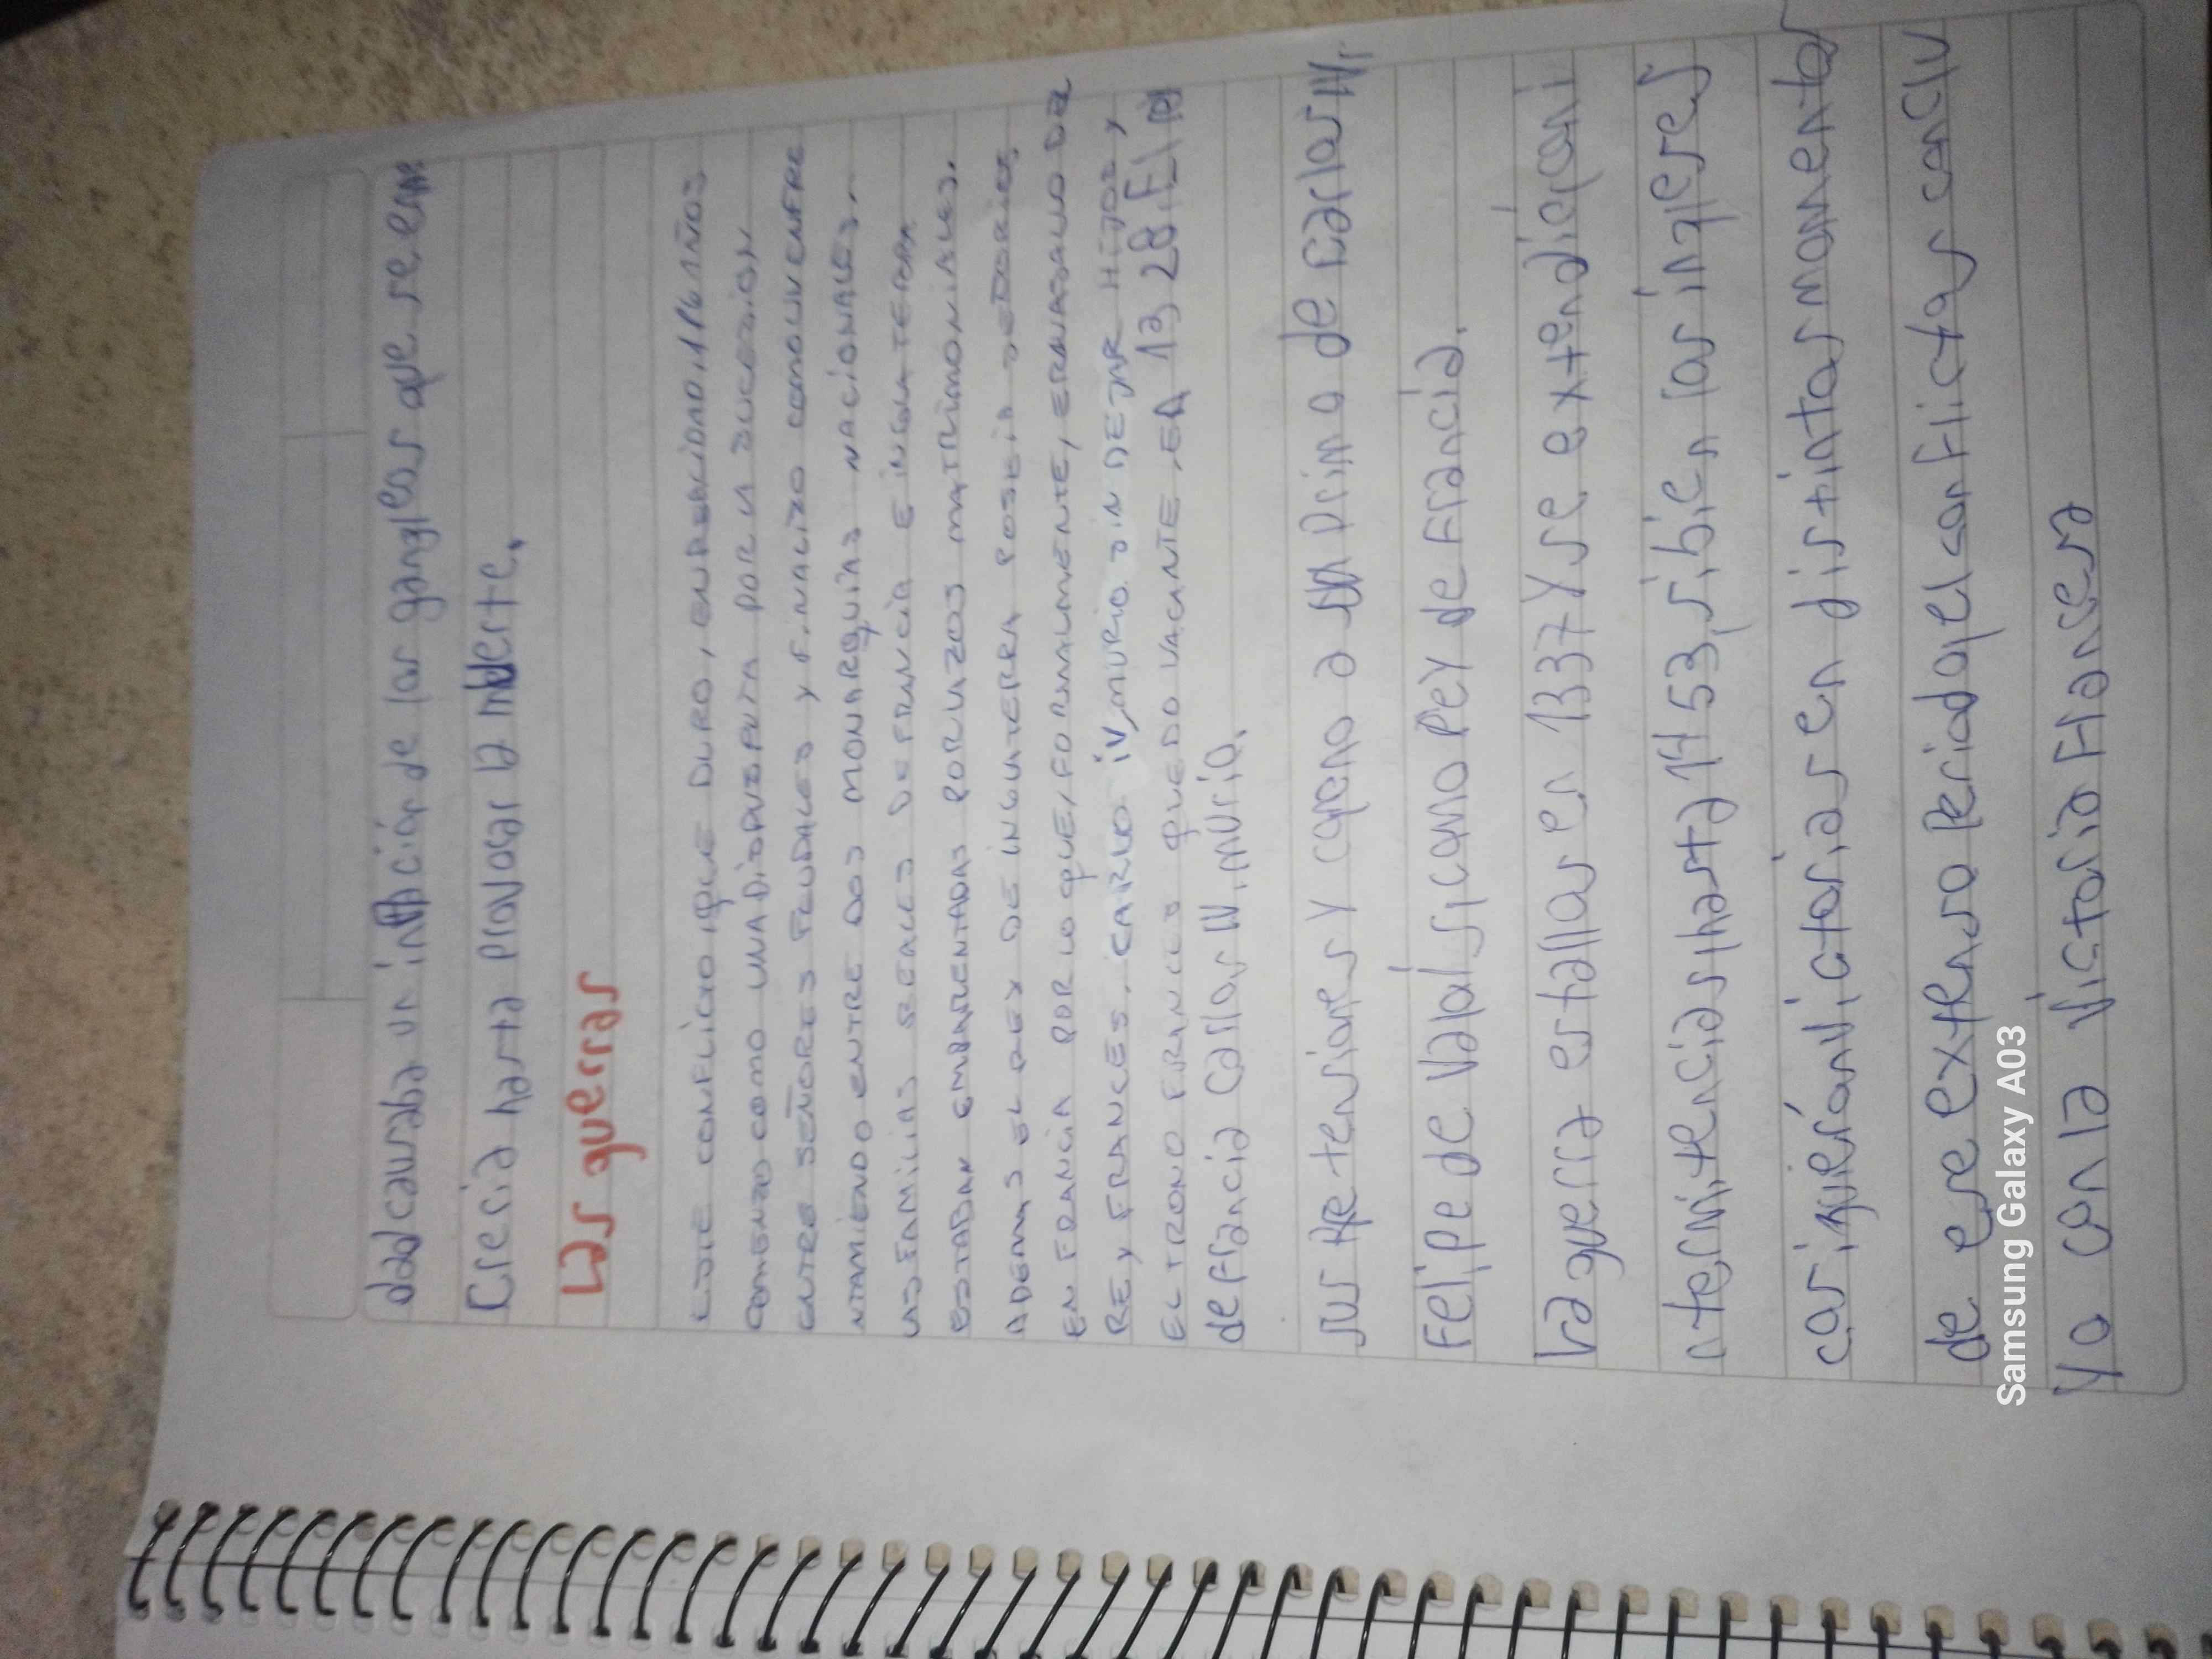 dad causaba un inflación de los ganglios que se enne
Crecia hasta provocar la muerte.
Las guerras
ESTE CONFLICTO QUE DURO, EN REALIDAD, 116 AÑOS
COMENZO COMO UNA DISPUTA POR LA SUCESION
ENTRE SEÑORES FEUDALES Y FINALIZO COMO UN ENFRE
NTAMIENDO ENTRE DOS MONARQUIAS NACIONALES.
LAS FAMILIAS REALES DE FRANCIA E INGLATERRA
ESTABAN EMPARENTADAS POR LAZOS MATRIMONIALES.
ADEMAS EL REY DE INGLATERRA POSEIA
EN FRANCIA POR LO QUE, FORMALMENTE, ERA VASALLO DEL
REY FRANCES. CARLO IV, MURIO SIN DEJAR HIJOS Y
EL TRONO FRANCES QUEDO VACANTE. EN 1328 Felip
de Francia Carlos IV, murio.
sus pretensiones y corono a primo de Carlos IV,
Felipe de Valois, como Rey de Francia.
La guerra estallos en 1337 y se extendió con i
ntermitencias, hasta 1453, si bien los ingleses
consiguieron victorias en distintos momentos
de ese extenso periodo, el conflicto conclu
yo con la victoria Francesa